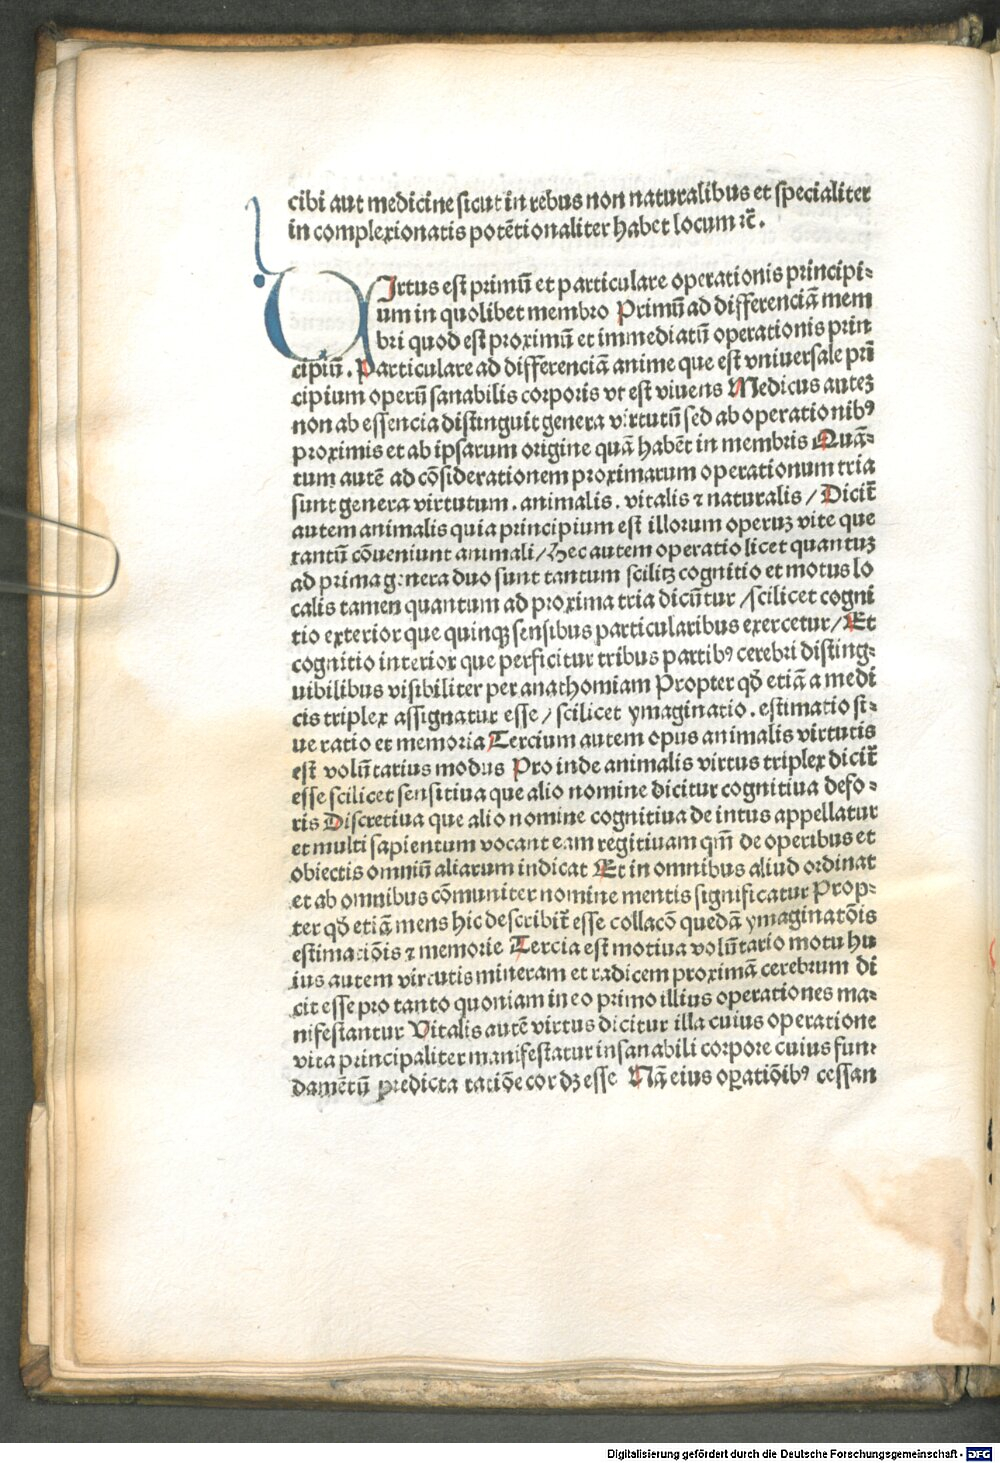 cibi aut medicine sicut in rebus non naturalibus et specialiter
in complexionatis potētionaliter habet locum ⁊c̄.
VIrtus est primū et particulare operationis principi-
um in quolibet membro Primū ad differenciā mem
bri quod est proximū et immediatū operationis prin
cipiū. Particulare ad differenciā anime que est vniuersale pri̅
cipium operū sanabilis corporis vt est viuens Medicus auteꝫ
non ab essencia distinguit genera virtutū sed ab operationibꝰ
proximis et ab ipsarum origine quā habēt in membris Quā-
tum autē ad cōsiderationem proximarum operationum tria
sunt genera virtutum. animalis. vitalis ⁊ naturalis / Dicit̄
autem animalis quia principium est illorum operuꝫ vite que
tantū cōueniunt animali / Hec autem operatio licet quantuꝫ
ad prima genera duo sunt tantum scilitꝫ cognitio et motus lo
calis tamen quantum ad proxima tria dicūtur / scilicet cogni
tio exterior que quinqꝫ sensibus particularibus exercetur / Et
cognitio interior que perficitur tribus partibꝰ cerebri disting-
uibilibus visibiliter per anathomiam Propter qd̄ etiā a medi
cis triplex assignatur esse / scilicet ymaginatio. estimatio si-
ue ratio et memoria Tercium autem opus animalis virtutis
est volūtarius modus Pro inde animalis virtus triplex dicit̄
esse scilicet sensitiua que alio nomine dicitur cognitiua defo-
ris Discretiua que alio nomine cognitiua de intus appellatur
et multi sapientum vocant eam regitiuam qm̄ de operibus et
obiectis omniū aliarum indicat Et in omnibus aliud ordinat
et ab omnibus cōmuniter nomine mentis significatur Prop-
ter qd̄ etiā mens hic describit̄ esse collacō quedā ymaginatōis
estimaciōis ⁊ memorie Tercia est motiua volūtario motu hu
ius autem vircutis mineram et radicem proximā cerebrum di
cit esse pro tanto quoniam in eo primo illius operationes ma-
nifestantur Vitalis autē virtus dicitur illa cuius operatione
vita principaliter manifestatur in sanabili corpore cuius fun-
damētū predicta ratiōe cor dꝫ esse Nā eius oꝑatiōibꝰ cessan
Digitalisierung gefördert durch die Deutsche Forschungsgemeinschaft - DFG